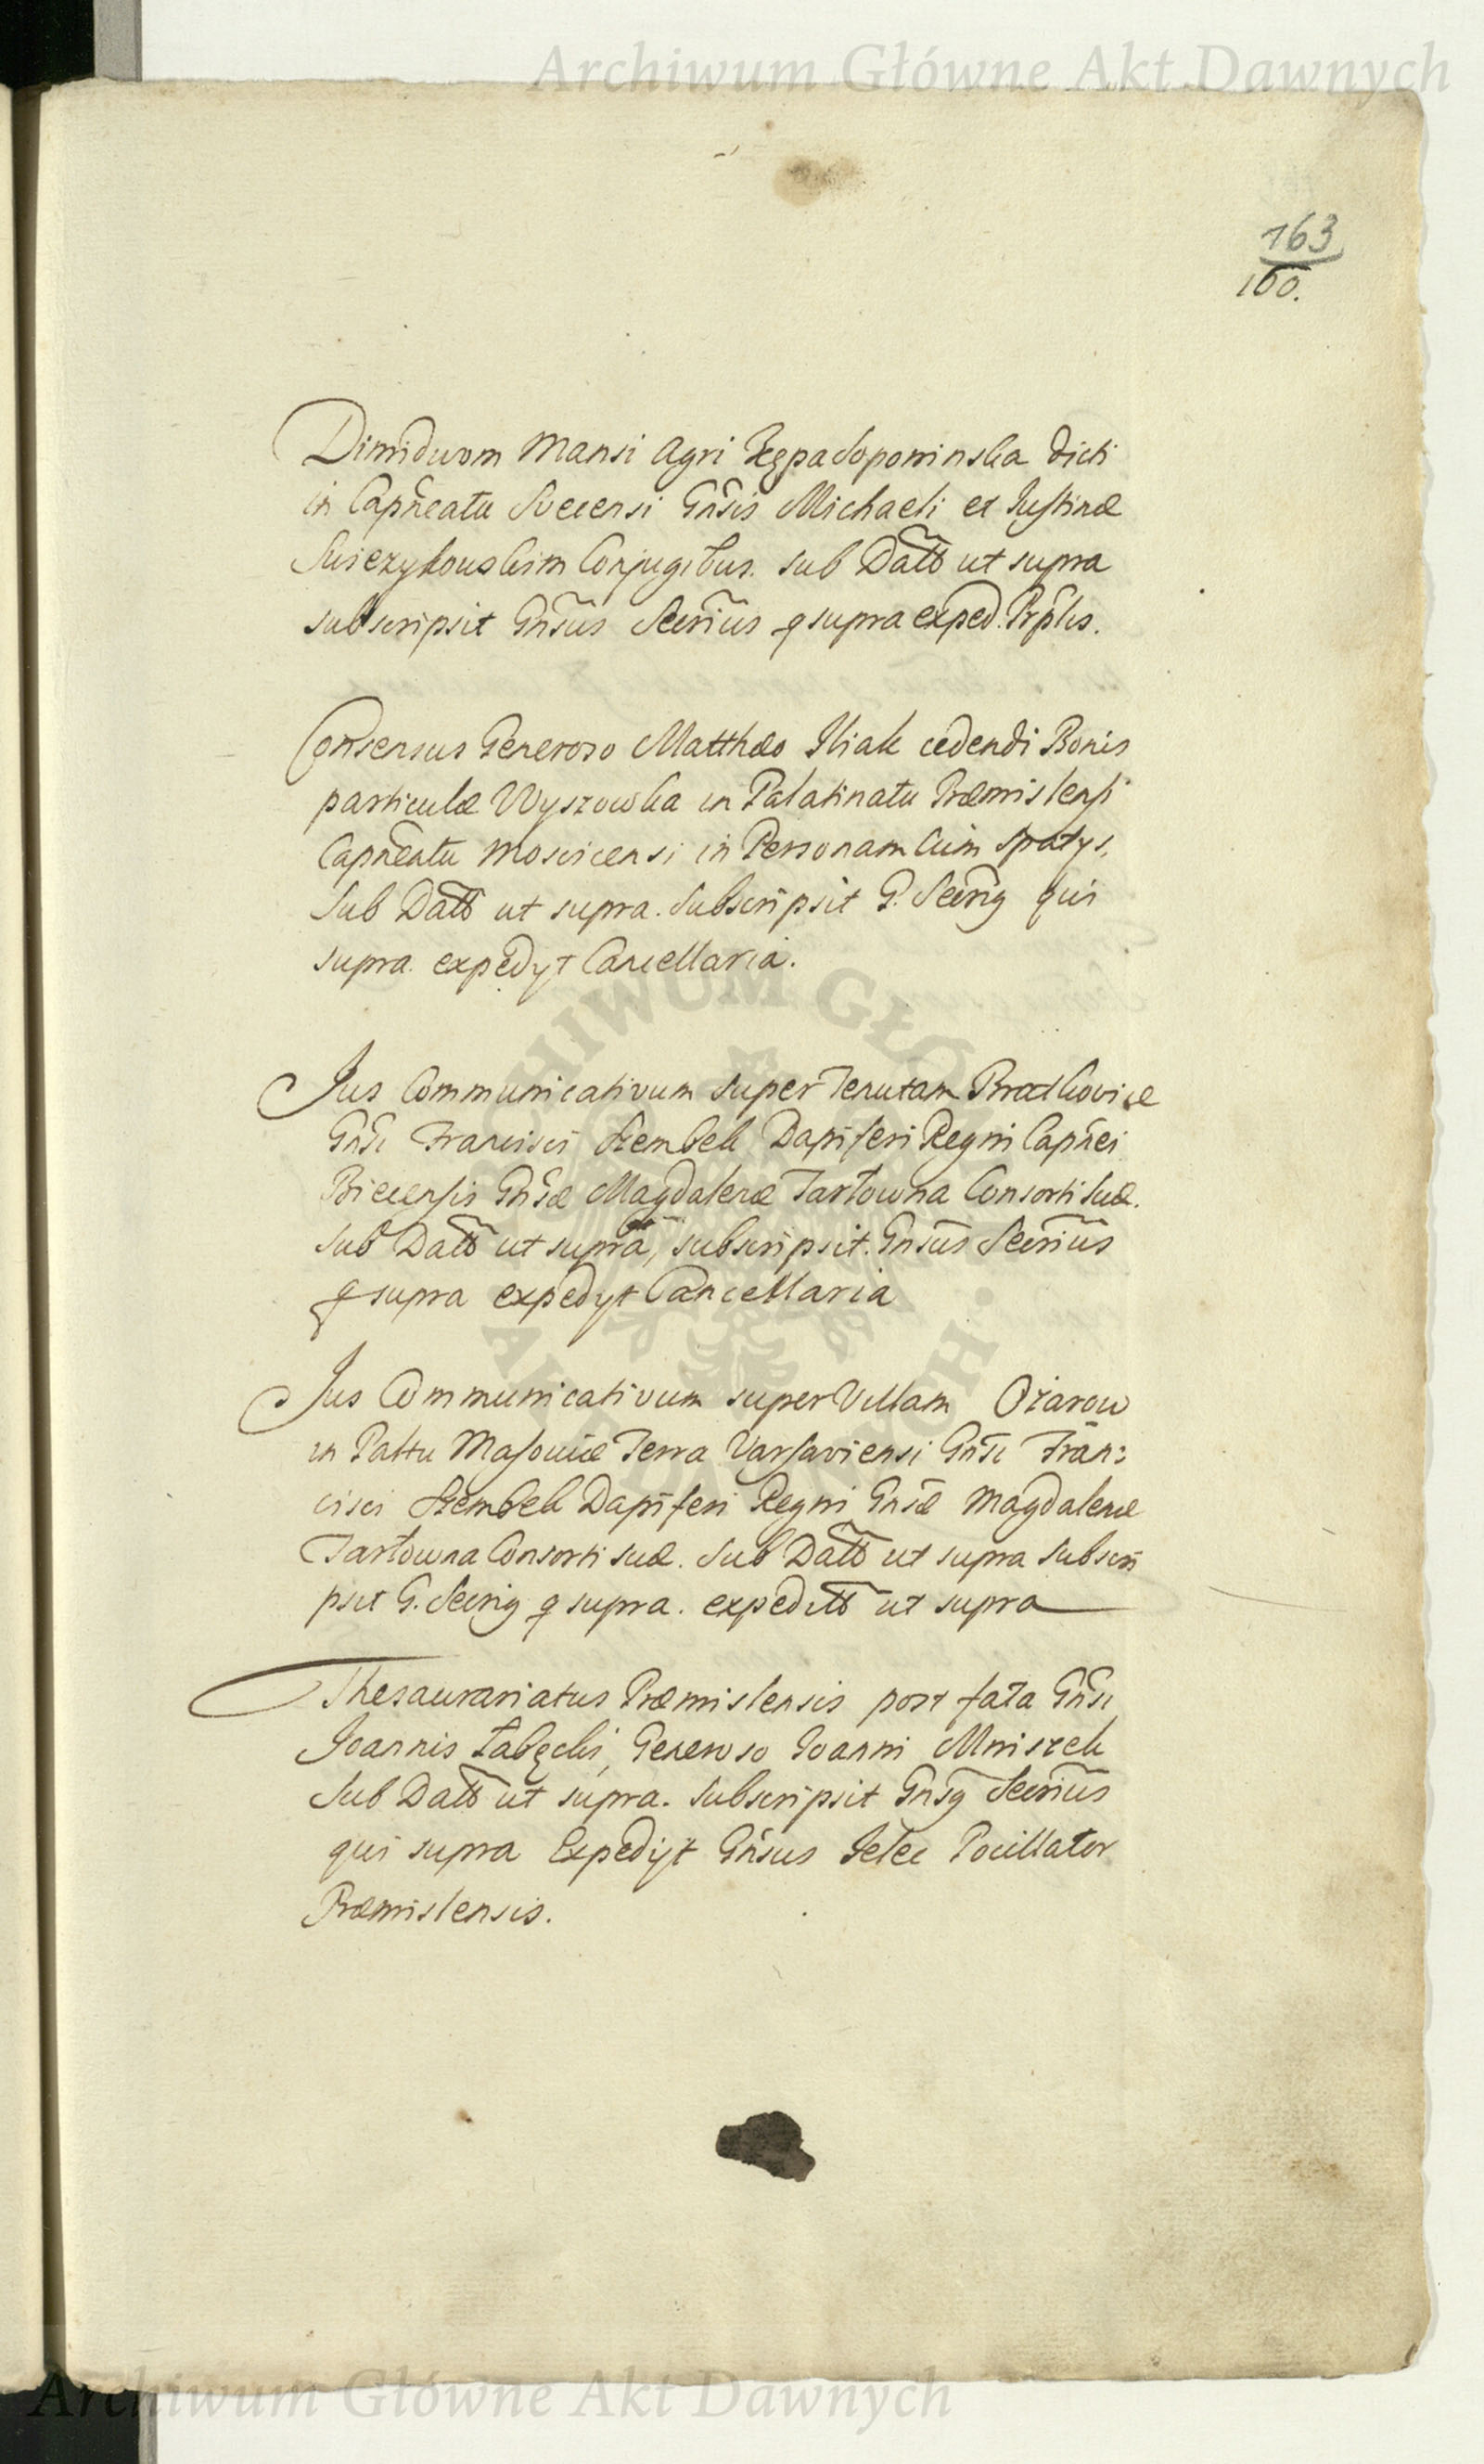 Archiwum Główne Akt Dawnych
163
160.
Dimiduum Mansi Agri Kępa Soponinska dicti
in Capñeatu Svecensi Gñsis Michaeli et Justinæ
Swiezykouskim Conjugibus. sub Datt͠o ut supra
subscripsit Gñsus Secr͠ius q supra exped.
Consensus Generoso Matthæo Iliak cedendi Bonis
particulæ Wyszowka in Palatinatu Præmislensi
Capñeatu Moscicensi in Personam Cum Spatys.
Sub Datt͠o ut supra. Subscripsit G. Secrĩg qui
supra expedyt Cancellaria.
Jus Communicativum super Tenutam Bratkovice
Gñsi Francisci Szembek Dapiferi Regni Capñei
Biecensis Gñsæ Magdalenæ Tarłowna Consorti suæ.
Sub Datt͠o ut supra, subscripsit. Gñsus Secr͠ius
q supra expedyt Cancellaria
Jus Communicativum super Villam Ożarow
in Paltu Masoviæ Terra Varsaviensi Gñsi Fran:
cisci Szembek Dapiferi Regni Gñsæ Magdalenæ
Tarłowna Consorti suæ. Sub Datt͠o ut supra subscri
psit G. Secrĩg q supra. expeditt͠o ut supra
Thesaurariatus Præmislensis post fata Gñsi
Joannis Łabęcki, Generoso Joanni Mniszek
Sub Datt͠o ut supra. Subscripsit Gñsg Secr͠ius
qui supra Expedyt Gñsus Jelec Pocillator
Præmislensis.
ARCHIWUM GŁÓWNE
AKT DAWNYCH
Archiwum Główne Akt Dawnych